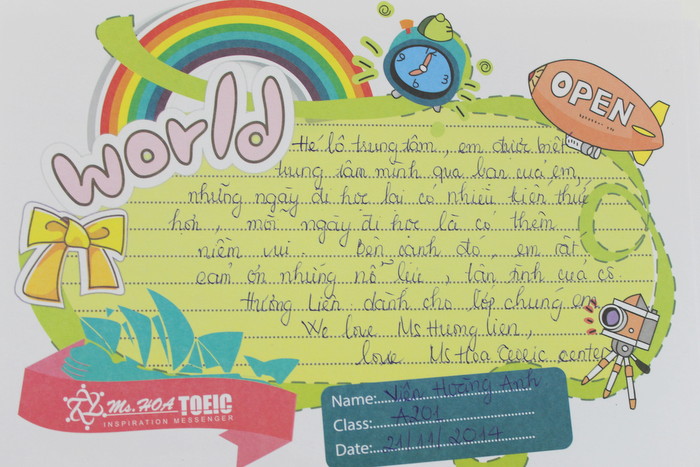 world
OPEN
Hé lô trung tâm, em được biết
trung tâm mình qua bạn của em,
những ngày đi học lại có nhiều kiến thức
hơn, mỗi ngày đi học là có thêm
niềm vui. Bên cạnh đó, em rất
cảm ơn những nỗ lực, tận tình của cô
Hương Liên dành cho lớp chúng em
We love Ms Huong lien,
love Ms Hoa Toeic center
Ms. HOA TOEIC
INSPIRATION MESSENGER
Name: Viên Hoàng Anh
Class: A201
Date: 21/11/2014